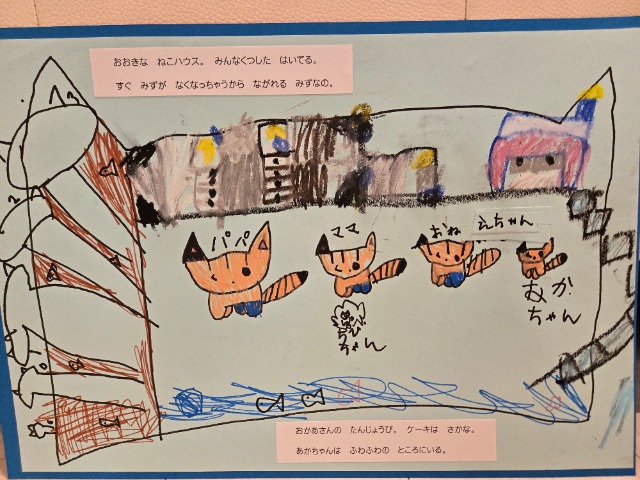 おおきな　ねこハウス。　みんなくつした　はいてる。
すぐ　みずが　なくなっちゃうから　ながれる　みずなの。
パパ
ママ
おね
えちゃん
ちび
ちゃん
あか
ちゃん
おかあさんの　たんじょうび。　ケーキは　さかな。
あかちゃんは　ふわふわの　ところにいる。